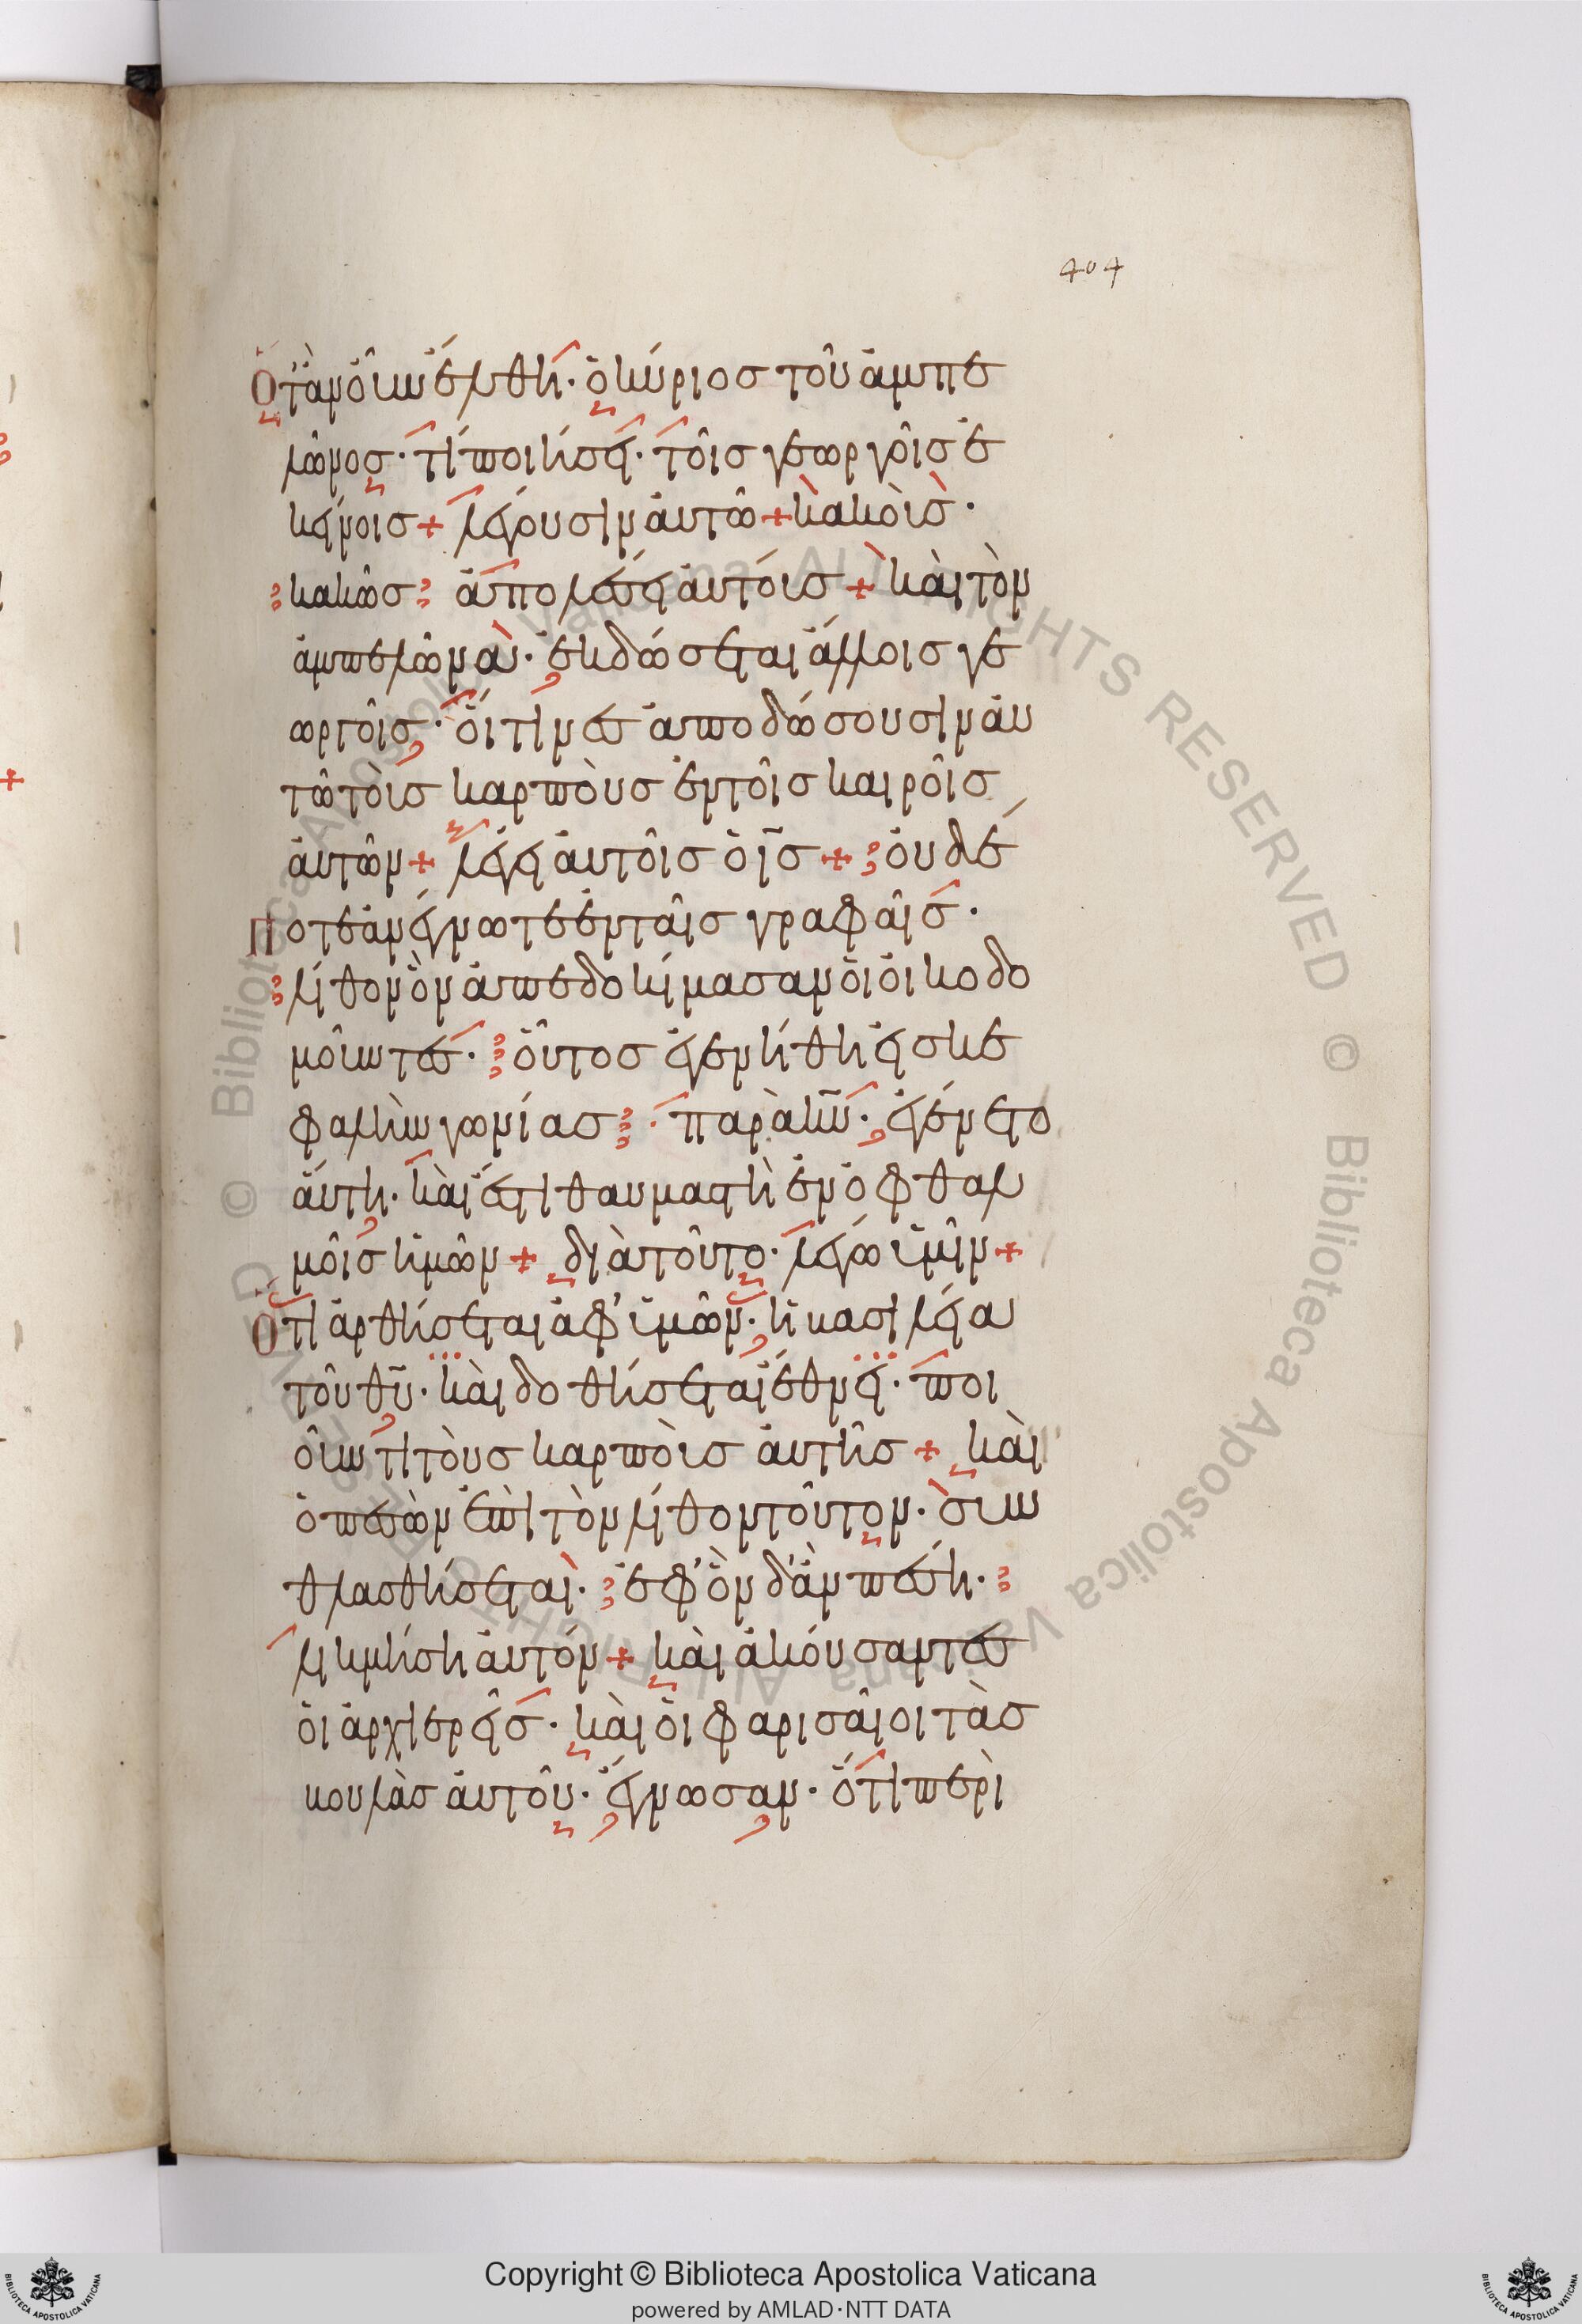 404
Ὅταν οὖν ἔλθη· ὁ κύριοσ τοῦ ἀμπε
λῶνοσ· τί ποιήσει· τοῖσ γεωργοῖσ ἐ
κείνοισ + λέγουσιν αὐτῶ + κακοὺσ·
κακῶσ ἀπολέσει αὐτούσ + καὶ τὸν
ἀμπελῶνα· ἐκδώσεται ἄλλοισ γε
ωργοῖσ· οἵτινεσ ἀποδώσουσιν αὐ
τῶ τοὺσ καρποὺσ ἐν τοῖσ καιροῖσ
αὐτῶν + λέγει αὐτοῖσ ὁ ι̅σ̅ + οὐδέ
Ποτε ἀνέγνωτε ἐν ταῖσ γραφαῖσ·
λίθον ὃν ἀπεδοκίμασαν οἱ οἰκοδο
μοῦντεσ· οὗτοσ ἐγενήθη εἰσ κε
φαλὴν γωνίασ· παρὰ κ̅υ̅· ἐγένετο
αὕτη· καὶ ἔστι θαυμαστὴ ἐν ὀφθαλ
μοῖσ ἡμῶν + διὰ τοῦτο· λέγω ὑμῖν +
Ὅτι ἀρθήσεται ἀφ' ὑμῶν· ἡ βασιλεία
τοῦ θ̅υ̅· καὶ δοθήσεται ἔθνει· ποι
οῦντι τοὺσ καρποὺσ αὐτῆσ + καὶ
ὁ πεσὼν ἐπὶ τὸν λίθον τοῦτον· συν
θλασθήσεται· ἐφ' ὃν δ' ἂν πέση·
λικμήση αὐτόν + καὶ ἀκούσαντεσ
οἱ ἀρχιερεῖσ· καὶ οἱ φαρισαῖοι τὰσ
βουλὰσ αὐτοῦ· ἔγνωσαν· ὅτι περὶ
© Biblioteca Apostolica Vaticana ALL RIGHTS RESERVED © Biblioteca Apostolica Vaticana ALL RIGHTS RESERVED
Copyright © Biblioteca Apostolica Vaticana
powered by AMLAD·NTT DATA
BIBLIOTECA APOSTOLICA VATICANA
BIBLIOTECA APOSTOLICA VATICANA